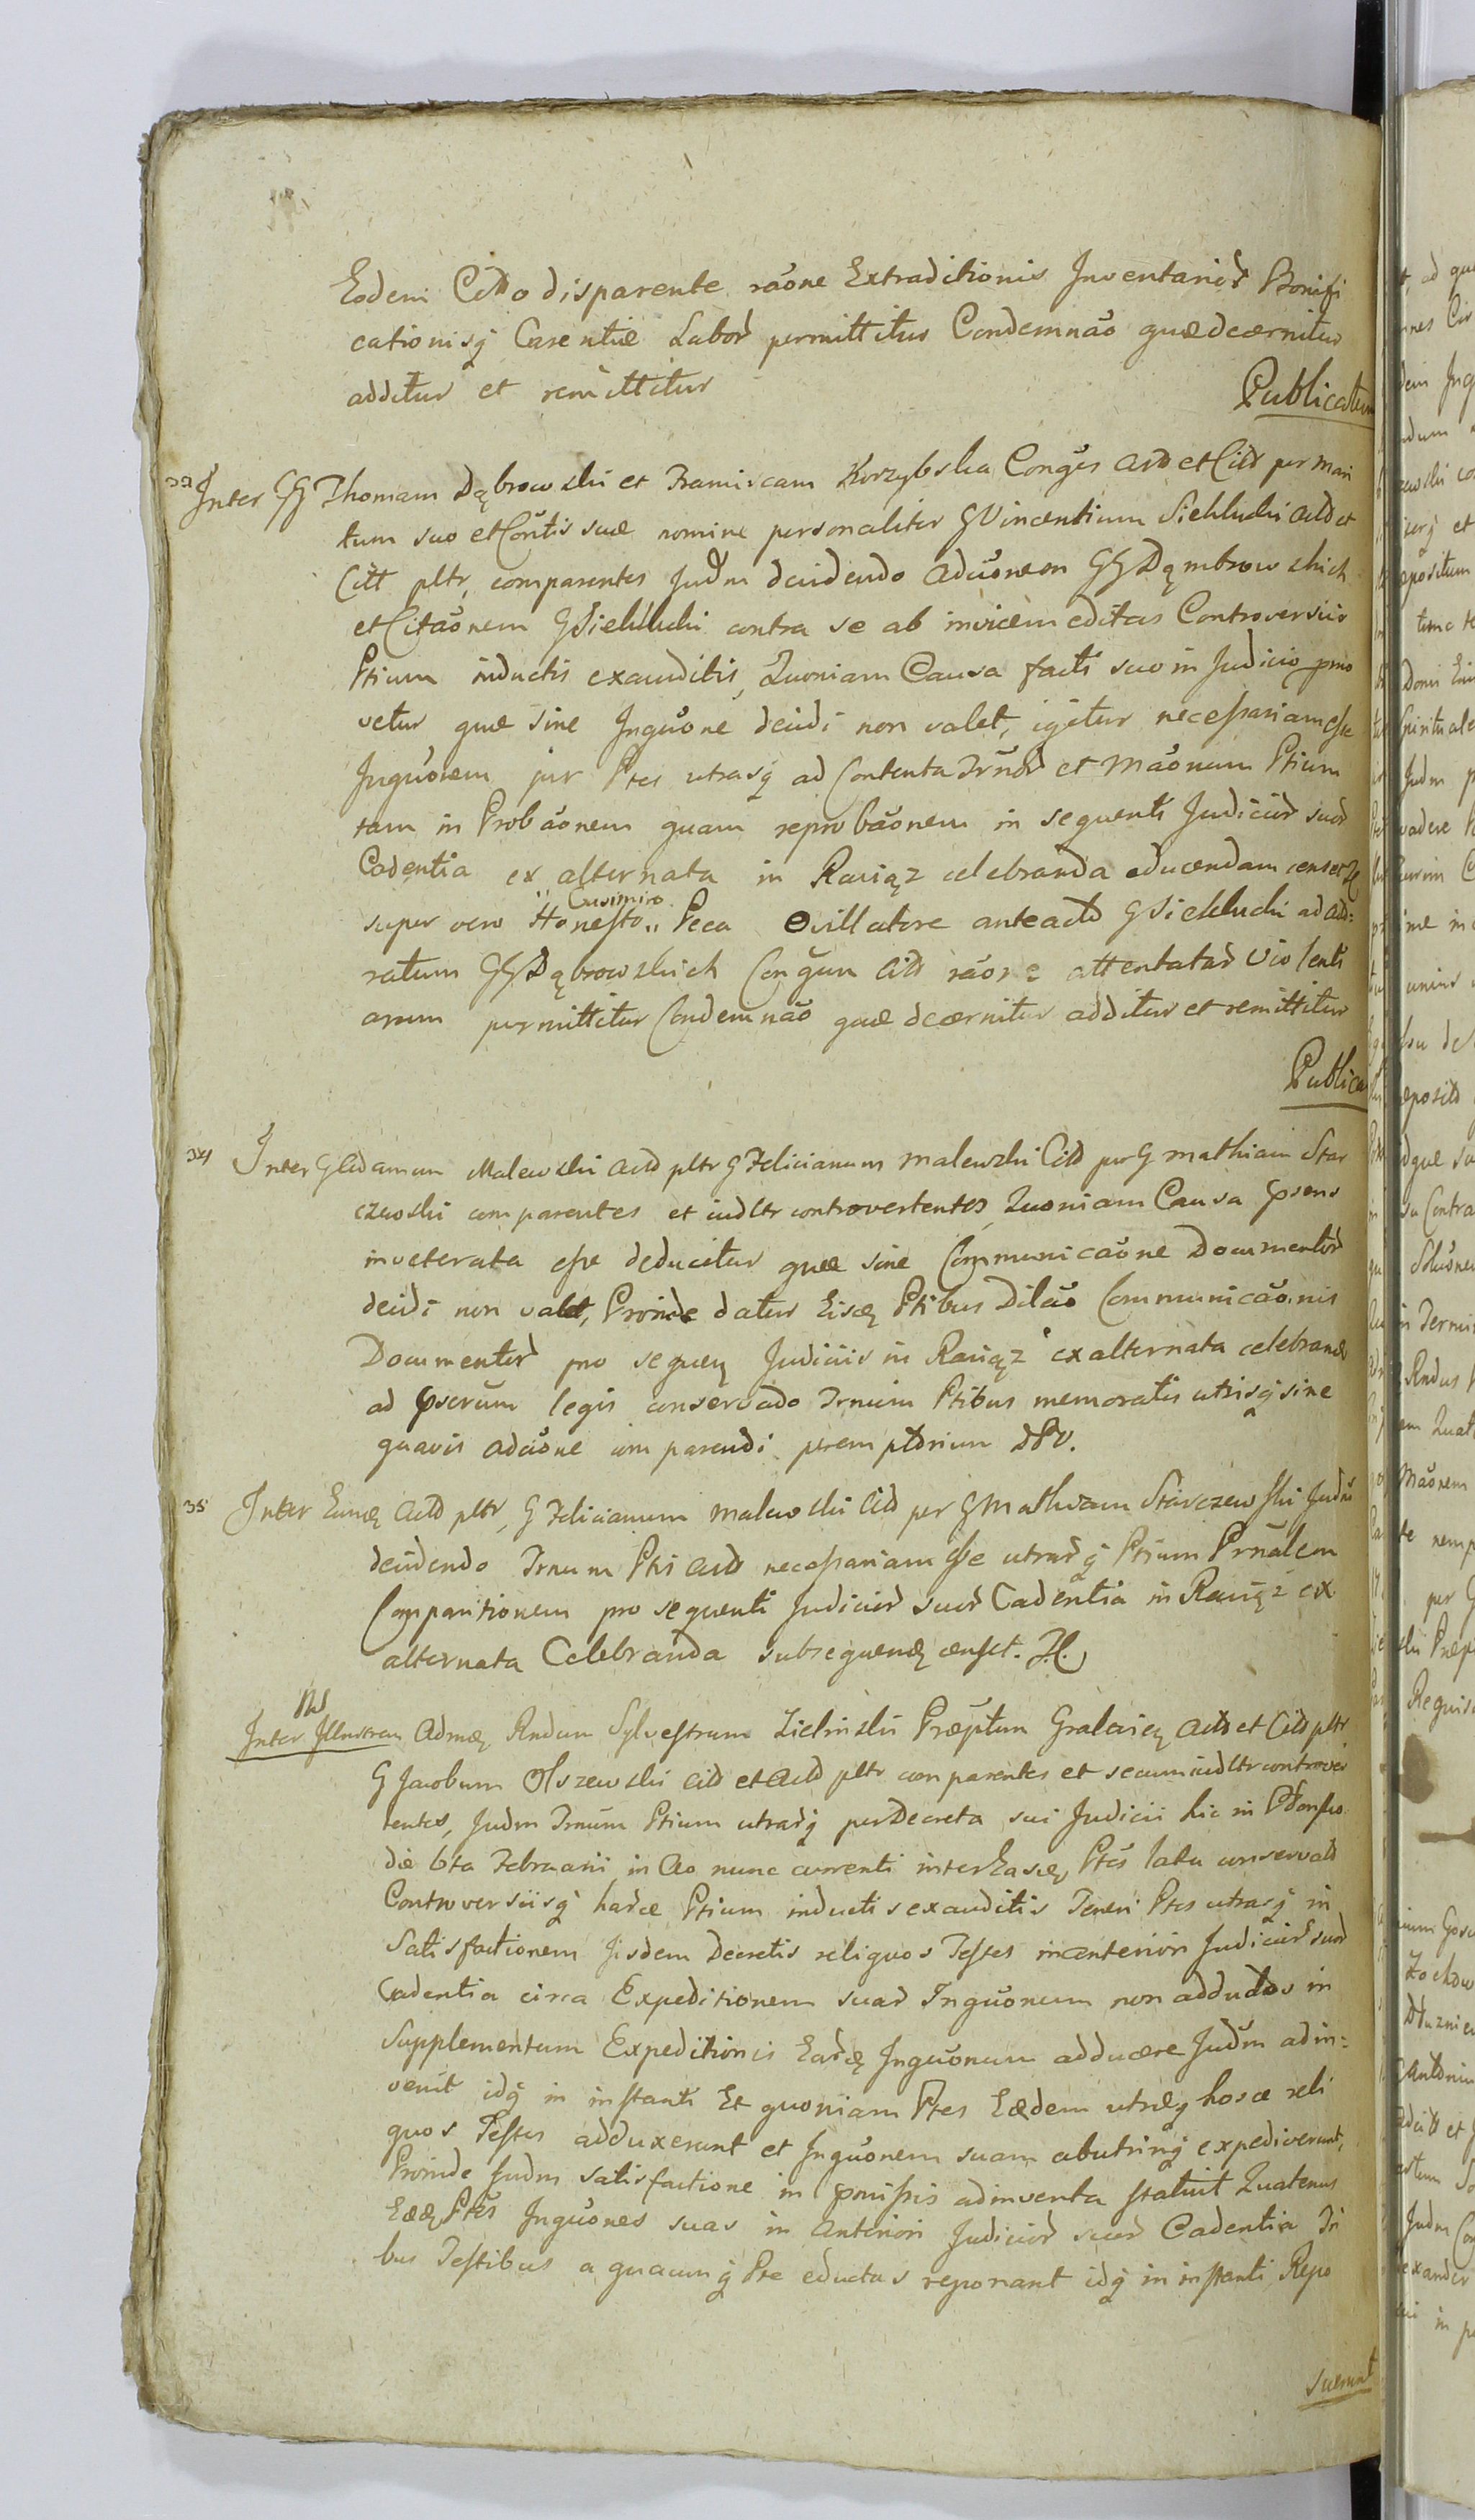 Eodem Citto disparente raone Extraditionis Inventarior Bonifi
cationisq Carentiæ Labor permittitur Condemnao quæ dcærnitur
additur et remittitur
Publicatum
Inter GG Thomam Dąbrowski et Franciscam Korzybska Conges Actt et Citt per Mari
tum suo et Contis suæ nomine personaliter G Vincentium Sieklucki Actt et
Citt pltr, comparentes Judm decidendo Actionem GG Dąmbrowskich
et Citaonem G Sieklucki contra se ab invicem editas Controversiis
Ptium inductis exauditis, Quoniam Causa facti suo in Judicio pmo
vetur quæ sine Inquone decidi non valet, igitur necessariam esse
Inquonem pr Ptes utrasq ad Contenta Trnor et Maonum Ptium
tam in Probaonem quam reprobaonem in sequenti Judicior suor
Cadentia ex alternata in Raciąz celebranda educendam censet
Casimiro
super vero Honesto Peca Ovillatore anteactt G Sieklucki ad Actt:
ratum GG Dąbrowskich Congum Citt raone attentatar Violenti
arum permittitur Condemnao quæ dcærnitur additur et remittitur
Publica
34 Inter G Adamum Malewski Actt pltr G Felicianum Malewski Citt per G Mathiam Star
czewski comparentes et iudltr controvertentes, Quoniam Causa psens
inveterata esse deducitur quæ sine Communicaone Documentor
decidi non valet, Proinde datur Eisdę Ptibus Dilao Communicaonis
Documentor pro sequeñ Judiciis in Raciąz ex alternata celebrand
ad pscrum legis conservado Trnum Ptibus memoratis utrisq sine
quavis adcione comparendi peremptorium DPV.
35 Inter Eundę Actt pltr, G Felicianum Malewski Citt per G Mathiam Starczewski Judm
decidendo Trnum Ptis Actt necessariam esse utrarq Ptium Prnalem
Comparitionem pro sequenti Judicior suor Cadentia in Raciąz ex
alternata Celebranda subsequendę censet.
NS
Inter Illustrem Admdę Rndum Sylvestrum Zielinski Præptum Actt et Citt pltr
G Jacobum Olszewski Citt et Actt pltr comparentes et secum iudltr controver
tentes, Judm Trnum Ptium utrarq per Decreta sui Judicii hic in
die 6ta Februarii in Ao nunc currenti inter Easdę Ptes lata conservatt
Controversiisq harce Ptium inductis exauditis Teneri Ptes utrasq in
Satisfactionem Iisdem Decretis reliquos Testes in anteriori Judicior suor
Cadentia circa Expeditionem suar Inquonum non adductos in
Supplementum Expeditionis Eardę Inquonum adducere Judm adin=
venit idq in instanti Et quoniam Ptes Eædem utræq hosce reli
quos Testes adduxerunt et Inquonem suam abutrinq expediverunt,
Proinde Judm satisfactione in pmissis adinventa statuit Quatenus
Eædę Ptes Inquones suas in Anteriori Judicior suor Cadentia Tri
bus Testibus a quacunq Pte eductas reponant idq in instanti Repo
suerunt